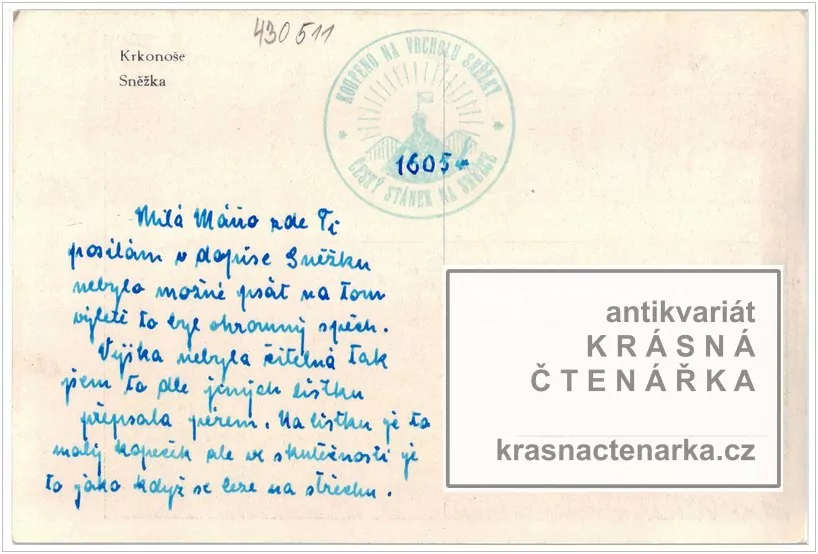 430511
Krkonoše
Sněžka
KOUPENO NA VRCHOLU SNĚŽKY
ČESKÝ STÁNEK NA SNĚŽCE
1605
Milá Máňo zde Ti
posílám v dopise Sněžku
nebylo možné psát na tom
výletě to byl ohromný spěch.
Výška nebyla čitelná tak
jsem to dle jiných lístku
přepsala pérem. Na lístku je to
malý kopečik ale ve skutečnosti je
to jako když se leze na střechu.
antikvariát
KRÁSNÁ
ČTENÁŘKA
krasnactenarka.cz